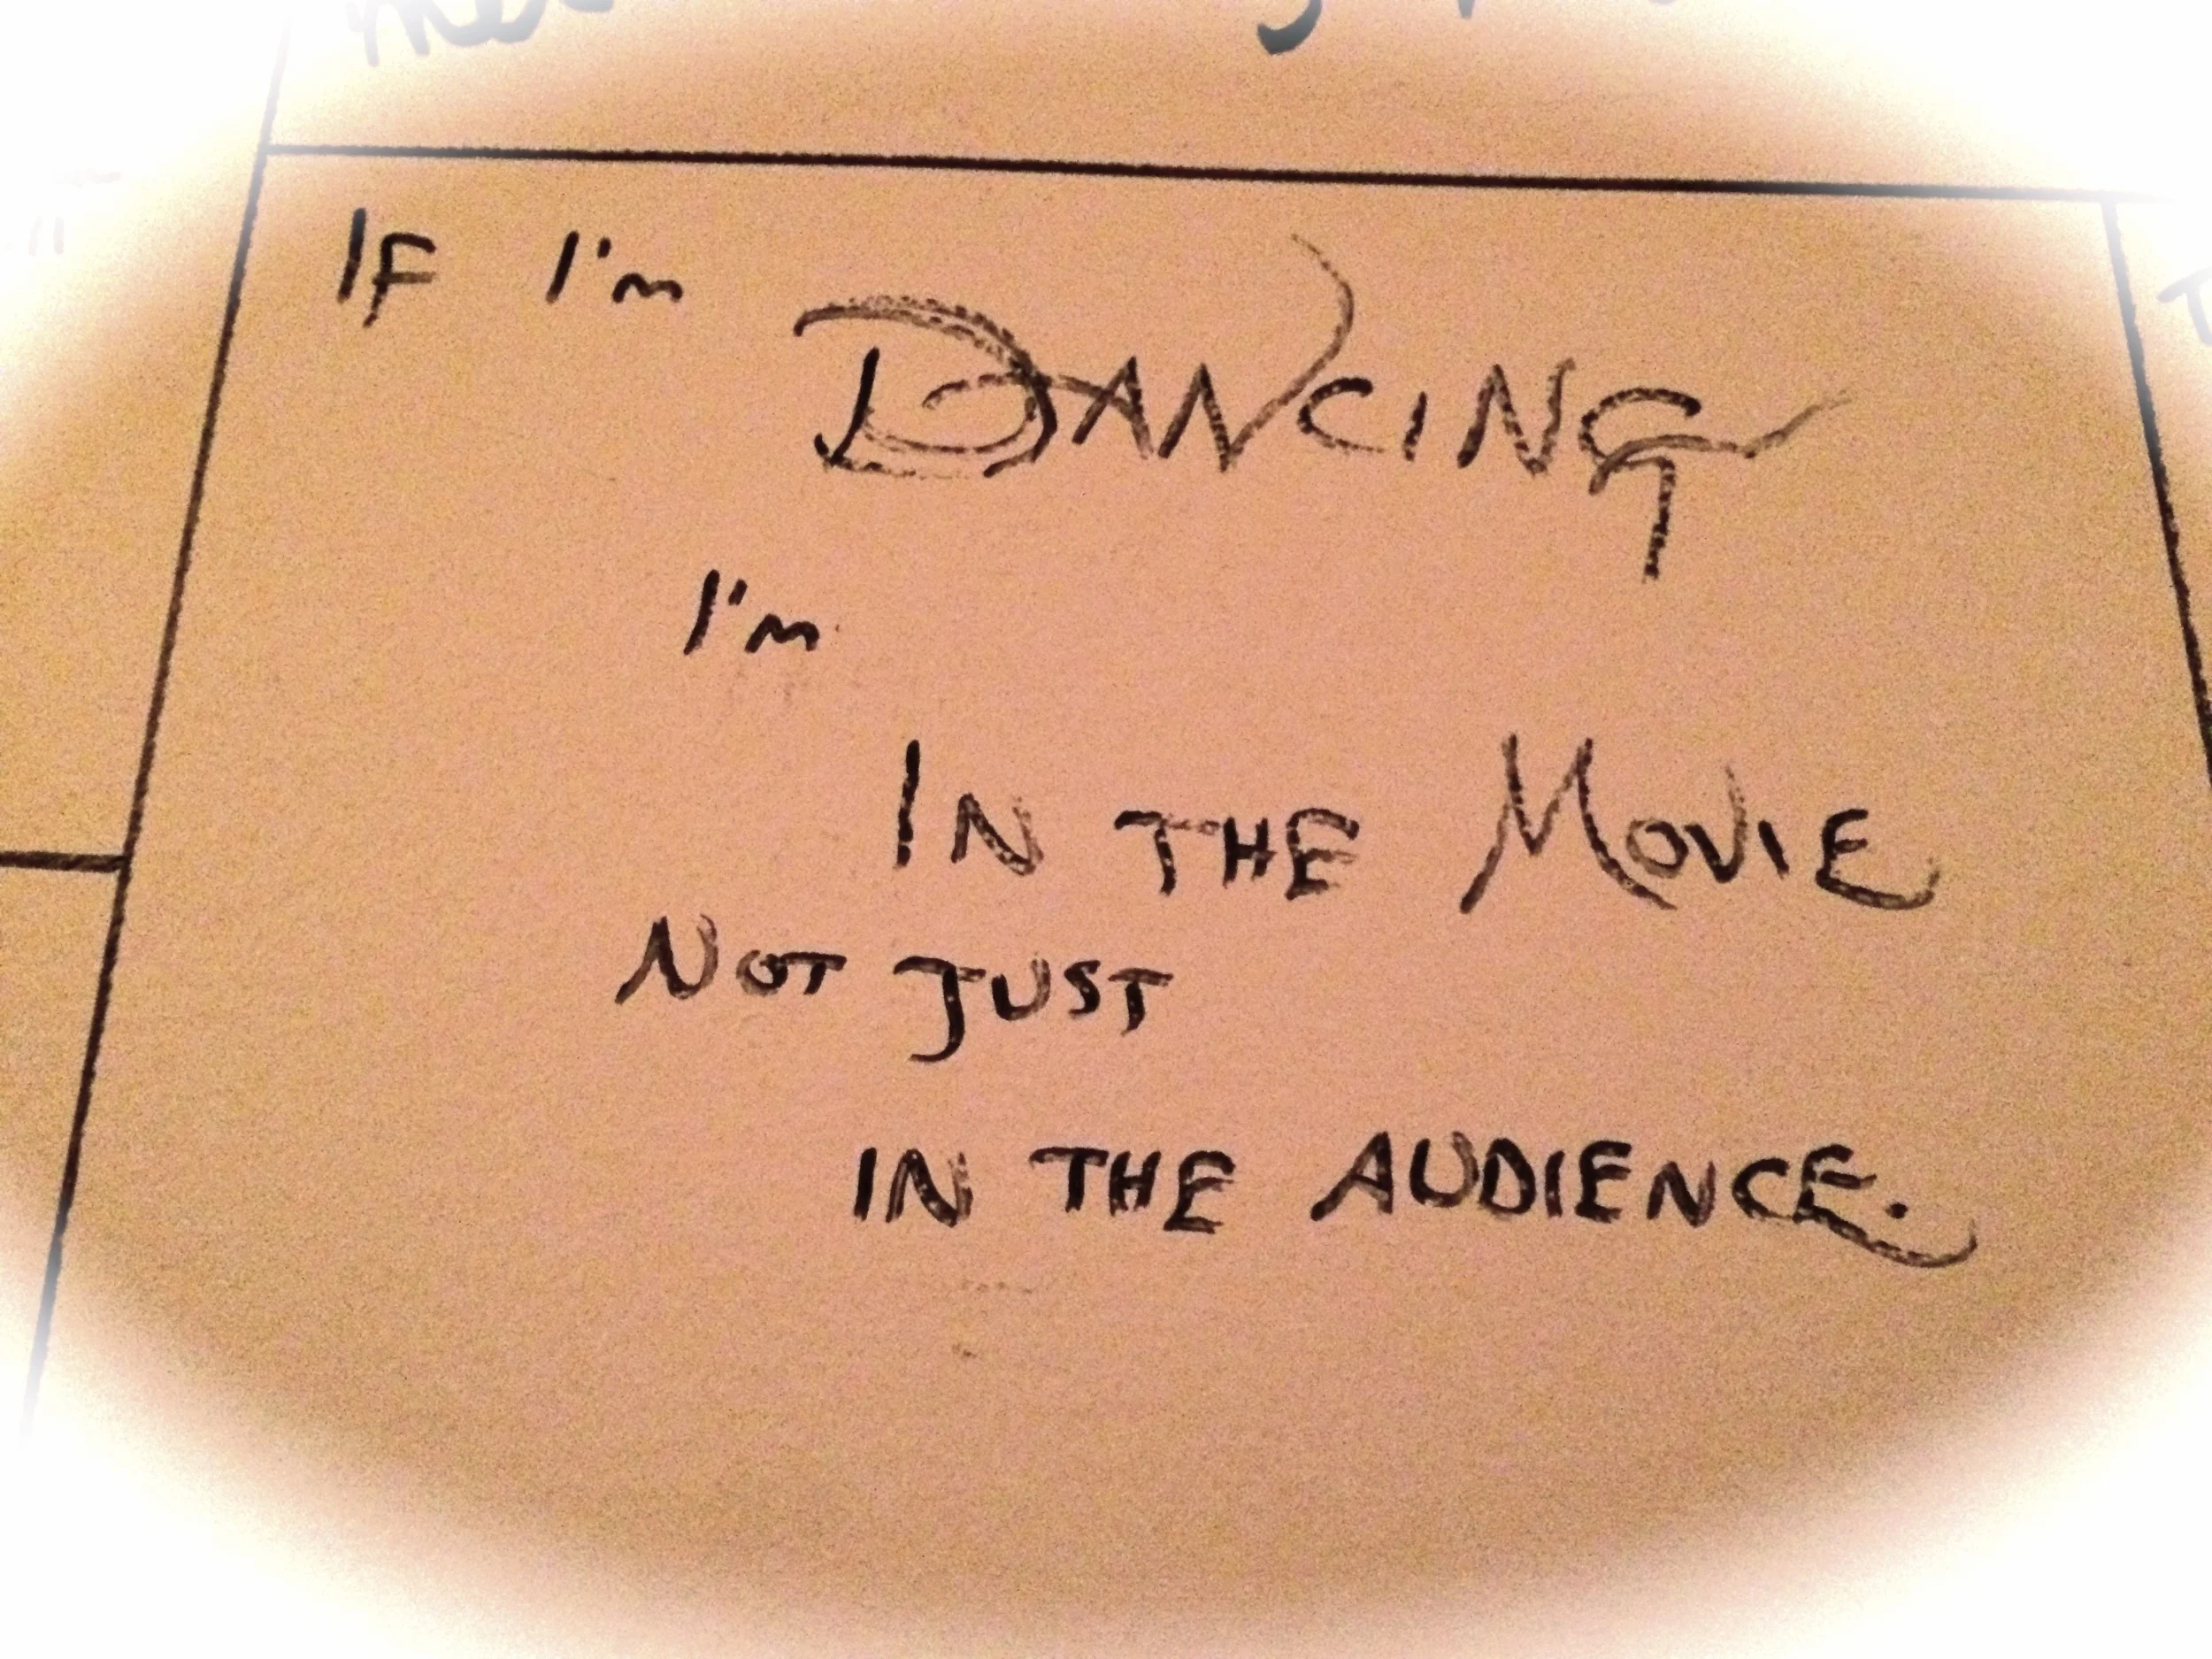 IF I'm DANCING
I'm
IN THE MOVIE
NOT JUST
IN THE AUDIENCE.